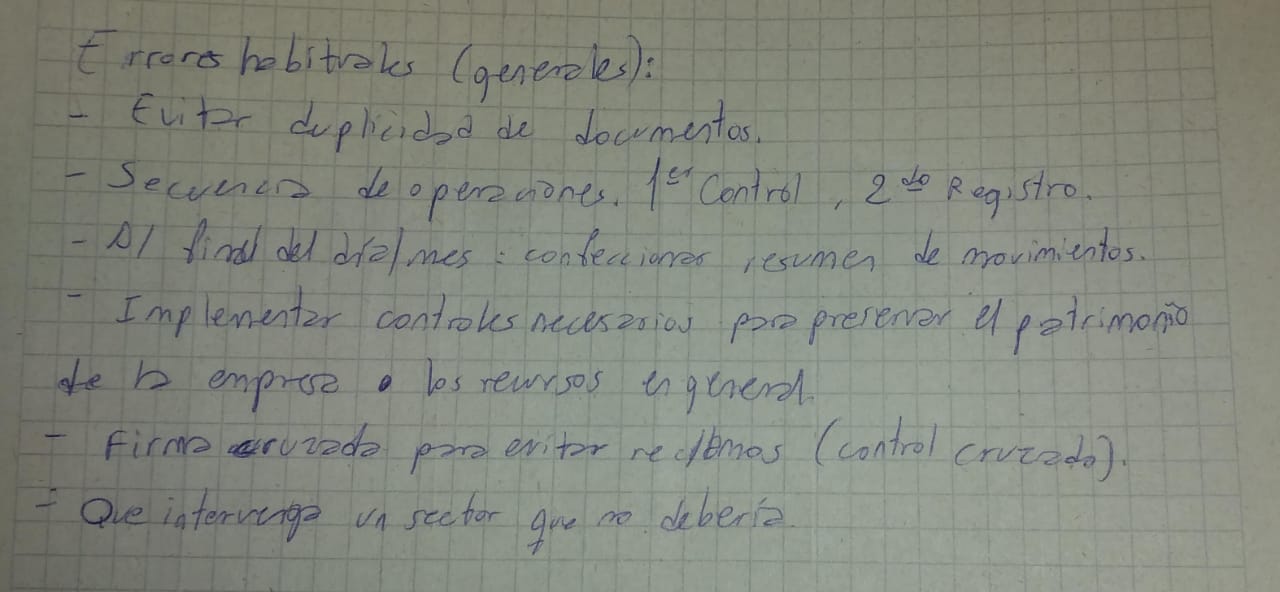 Errores habituales (generales):
- Evitar duplicidad de documentos.
- Secuencia de operaciones. 1er Control, 2do Registro.
- Al final del día/mes: confeccionar resumen de movimientos.
- Implementar controles necesarios para preservar el patrimonio
de la empresa o los recursos en general.
- Firma cruzada para evitar reclamos (control cruzado).
- Que intervenga un sector que no debería.